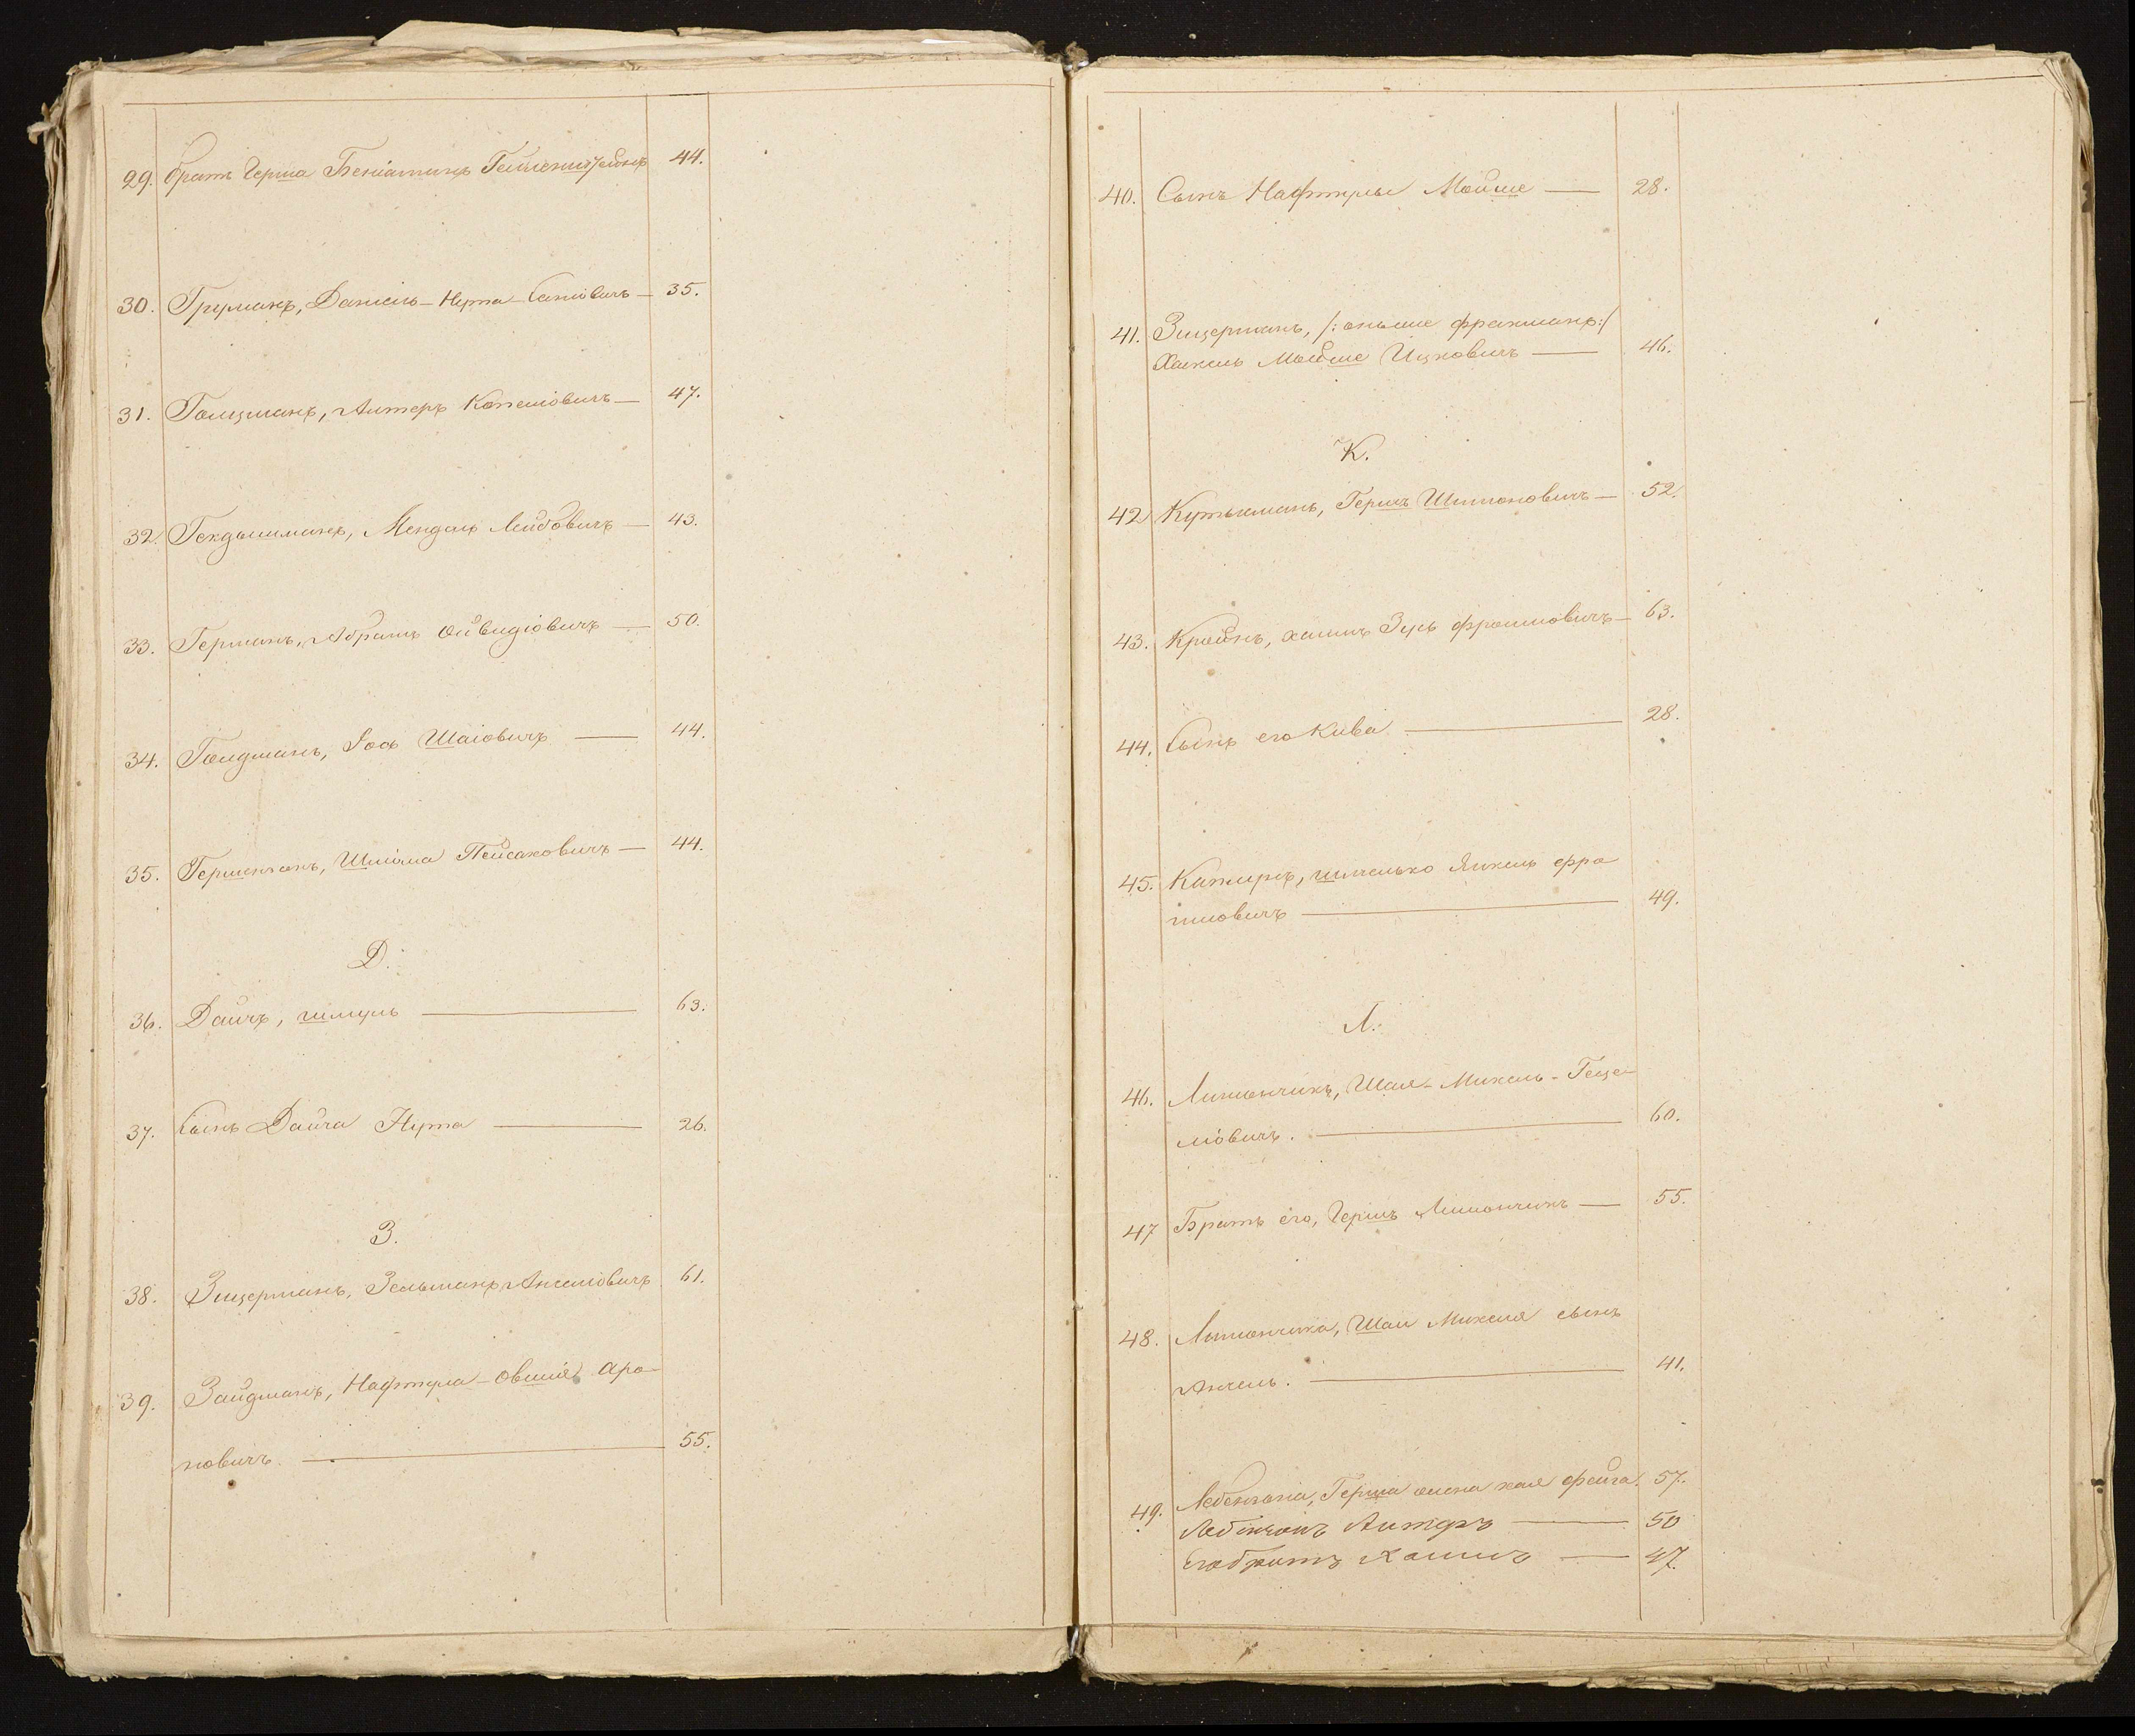 29. братъ Герша Беніаминъ Гелленштейнъ 44.
30. Груманъ, Даніель-Нута Саніовичъ — 35.
31. Голцманъ, Алтеръ Копеліовичъ — 47.
32. Гекдышманъ, Мендель Лейбовичъ — 43.
33. Германъ, Абрамъ Ойвидіовичъ — 50.
34. Голдманъ, Іось Шаіовичъ — 44.
35. Гершензонъ, Шліома Пейсаховичъ — 44.
Д.
36. Дайчъ, Шмуль — 63.
37. Сынъ Дайча Нута — 26.
З.
38. Зицерманъ, Зельманъ Анселіовичъ 61.
39. Зайдманъ, Нафтула-Овшія Аро-
новичъ. — 55.
40. Сынъ Нафтулы Мойше — 28.
41. Зицерманъ, /: онъ же Фрахманъ:/
Хаскель Мойше Ицковичъ — 46.
К.
42. Кутыкманъ, Гершъ Шимоновичъ — 52.
43. Крайнъ, Хаимъ Зусь Фроимовичъ — 63.
44. Сынъ его Кива — 28.
45. Капліръ, Шмелько Янкель Фро-
имовичъ — 49.
Л.
46. Лимончикъ, Шая-Михель-Геце-
ліовичъ. — 60.
47 Братъ его, Гершъ Лимончикъ — 55.
48. Лимончика, Шаи Михеля сынъ
Анчель. — 41.
49. Лебензона, Герша жена Хая Фейга. 57.
Лебензонъ Алтеръ — 50
Его братъ Хаимъ — 47.